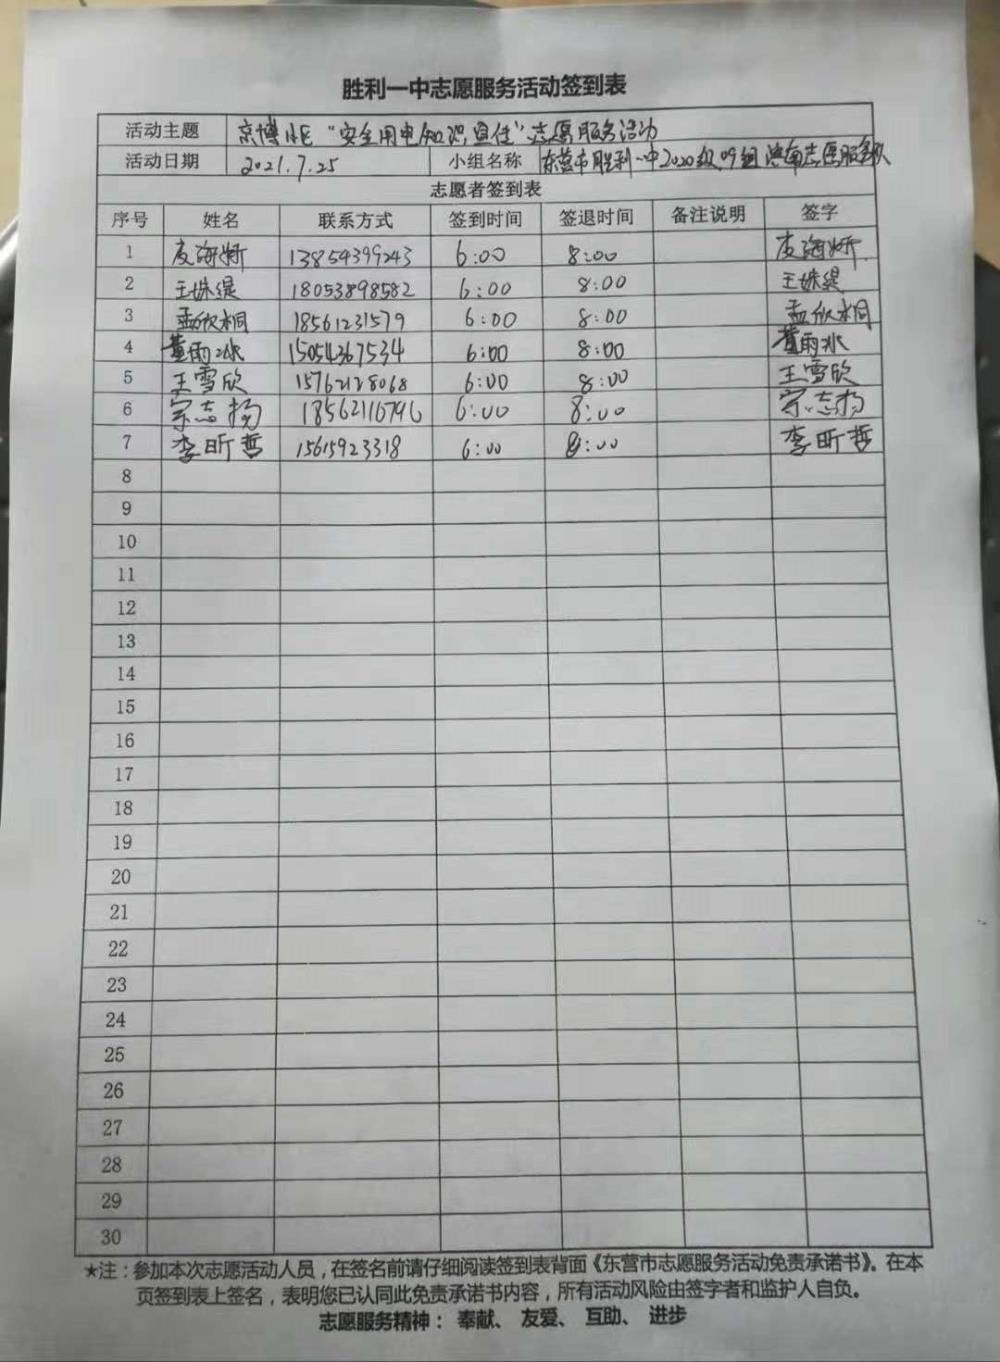 胜利一中志愿服务活动签到表
活动主题 京博小区“安全用电知识宣传”志愿服务活动
活动日期 2021.7.25 小组名称 东营市胜利一中2020级09组济南志愿服务队
志愿者签到表
序号 姓名 联系方式 签到时间 签退时间 备注说明 签字
1 海娇 13854399243 6:00 8:00 海娇
2 王姝缇 18053898582 6:00 8:00 王姝缇
3 孟欣桐 18561231579 6:00 8:00 孟欣桐
4 董雨冰 15054267534 6:00 8:00 董雨冰
5 王雪欣 15762128068 6:00 8:00 王雪欣
6 宗志扬 18562116796 6:00 8:00 宗志扬
7 李昕哲 15615923318 6:00 8:00 李昕哲
8
9
10
11
12
13
14
15
16
17
18
19
20
21
22
23
24
25
26
27
28
29
30
★注：参加本次志愿活动人员，在签名前请仔细阅读签到表背面《东营市志愿服务活动免责承诺书》。在本
页签到表上签名，表明您已认同此免责承诺书内容，所有活动风险由签字者和监护人自负。
志愿服务精神： 奉献、 友爱、 互助、 进步